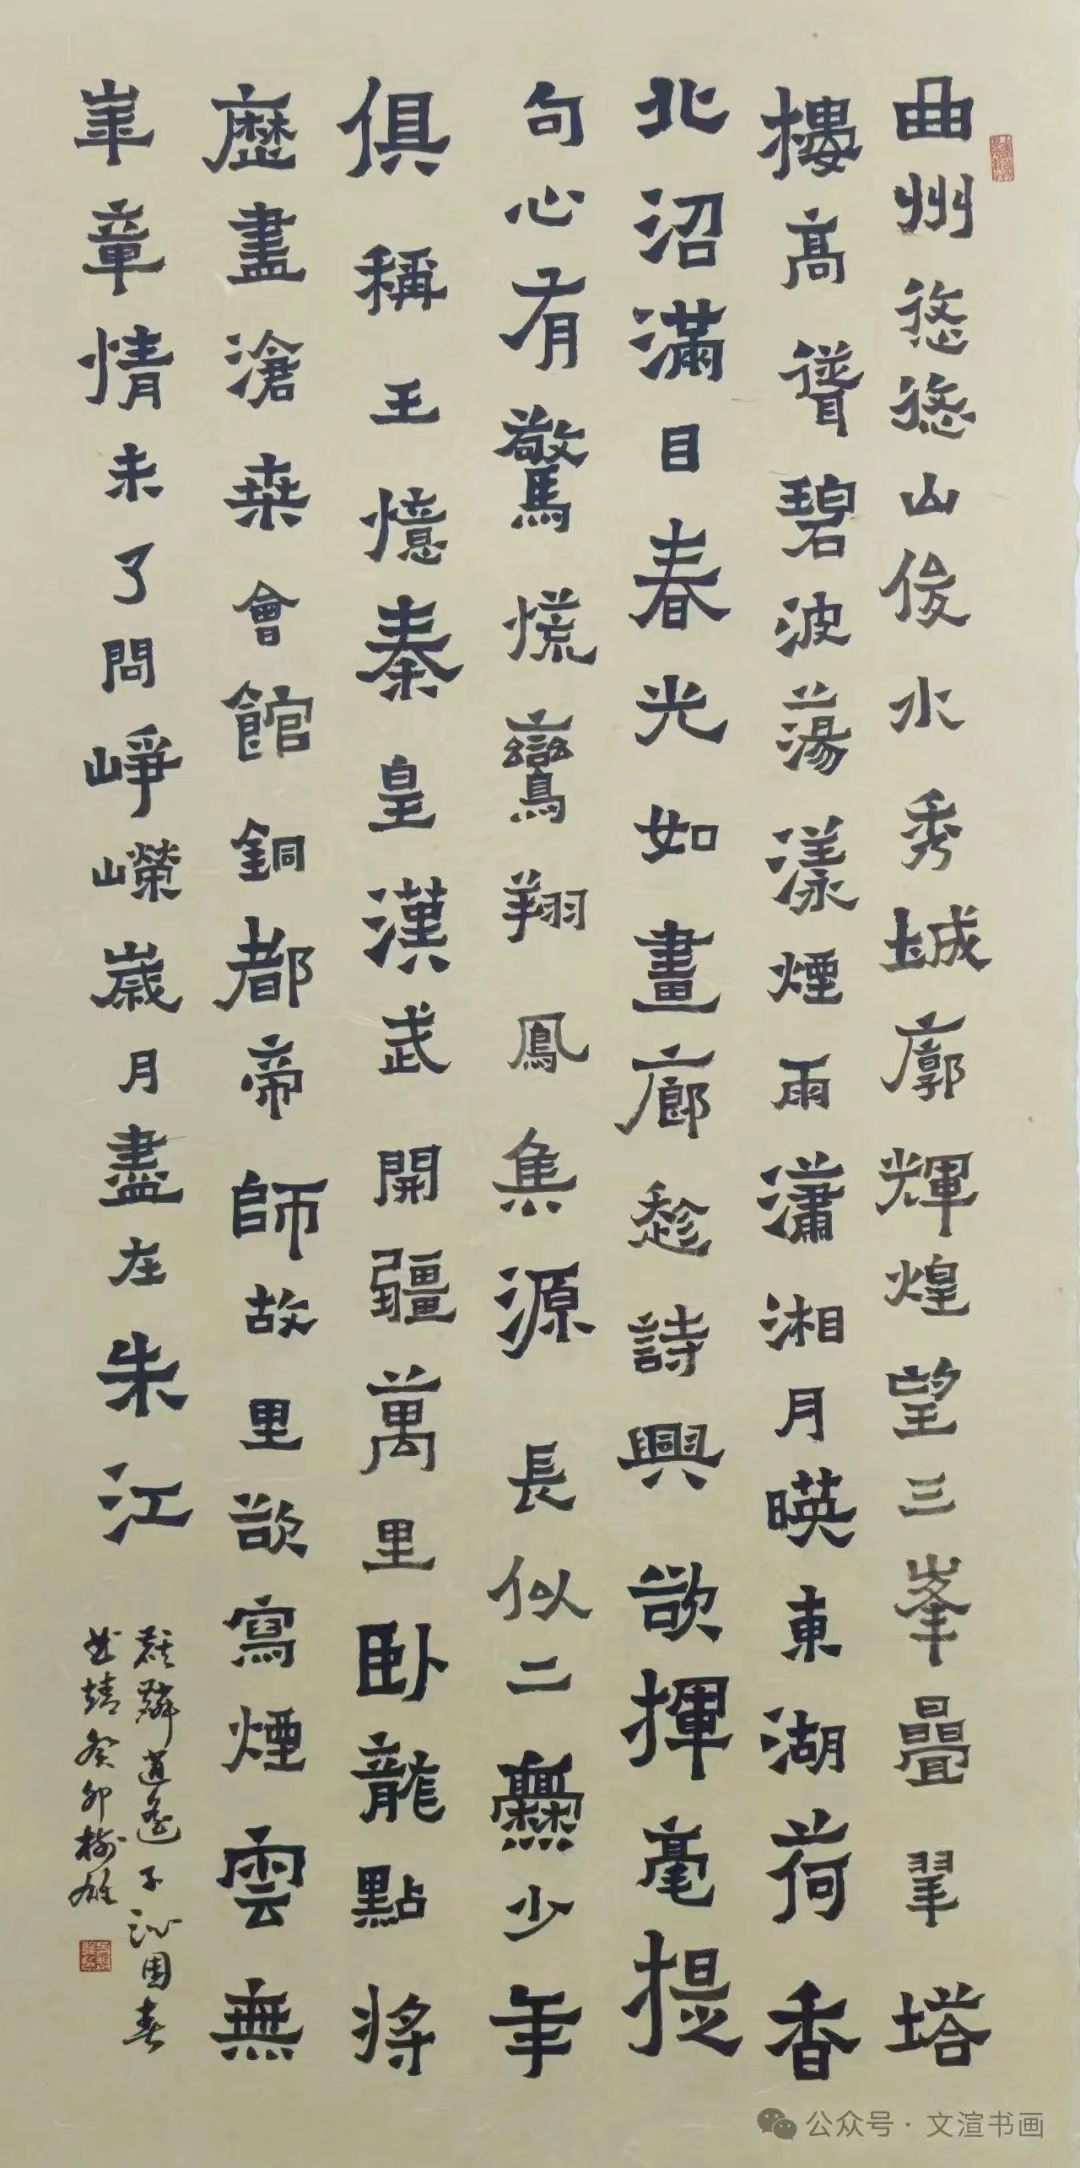 曲州悠悠山俊水秀城廓輝煌望三峯疊翠塔
樓高聳碧波蕩漾煙雨瀟湘月暎東湖荷香
北沼滿目春光如畫廊趁詩興欲揮毫提
句心有驚慌鸞翔鳳集源長似二爨少年
俱稱王憶秦皇漢武開疆萬里卧龍點將
歷盡滄桒會館銅都帝師故里欲寫煙雲無
羊章情未了問崢嶸歲月盡在朱江
子沁園春
曲靖癸卯樹雄
公众号·文渲书画